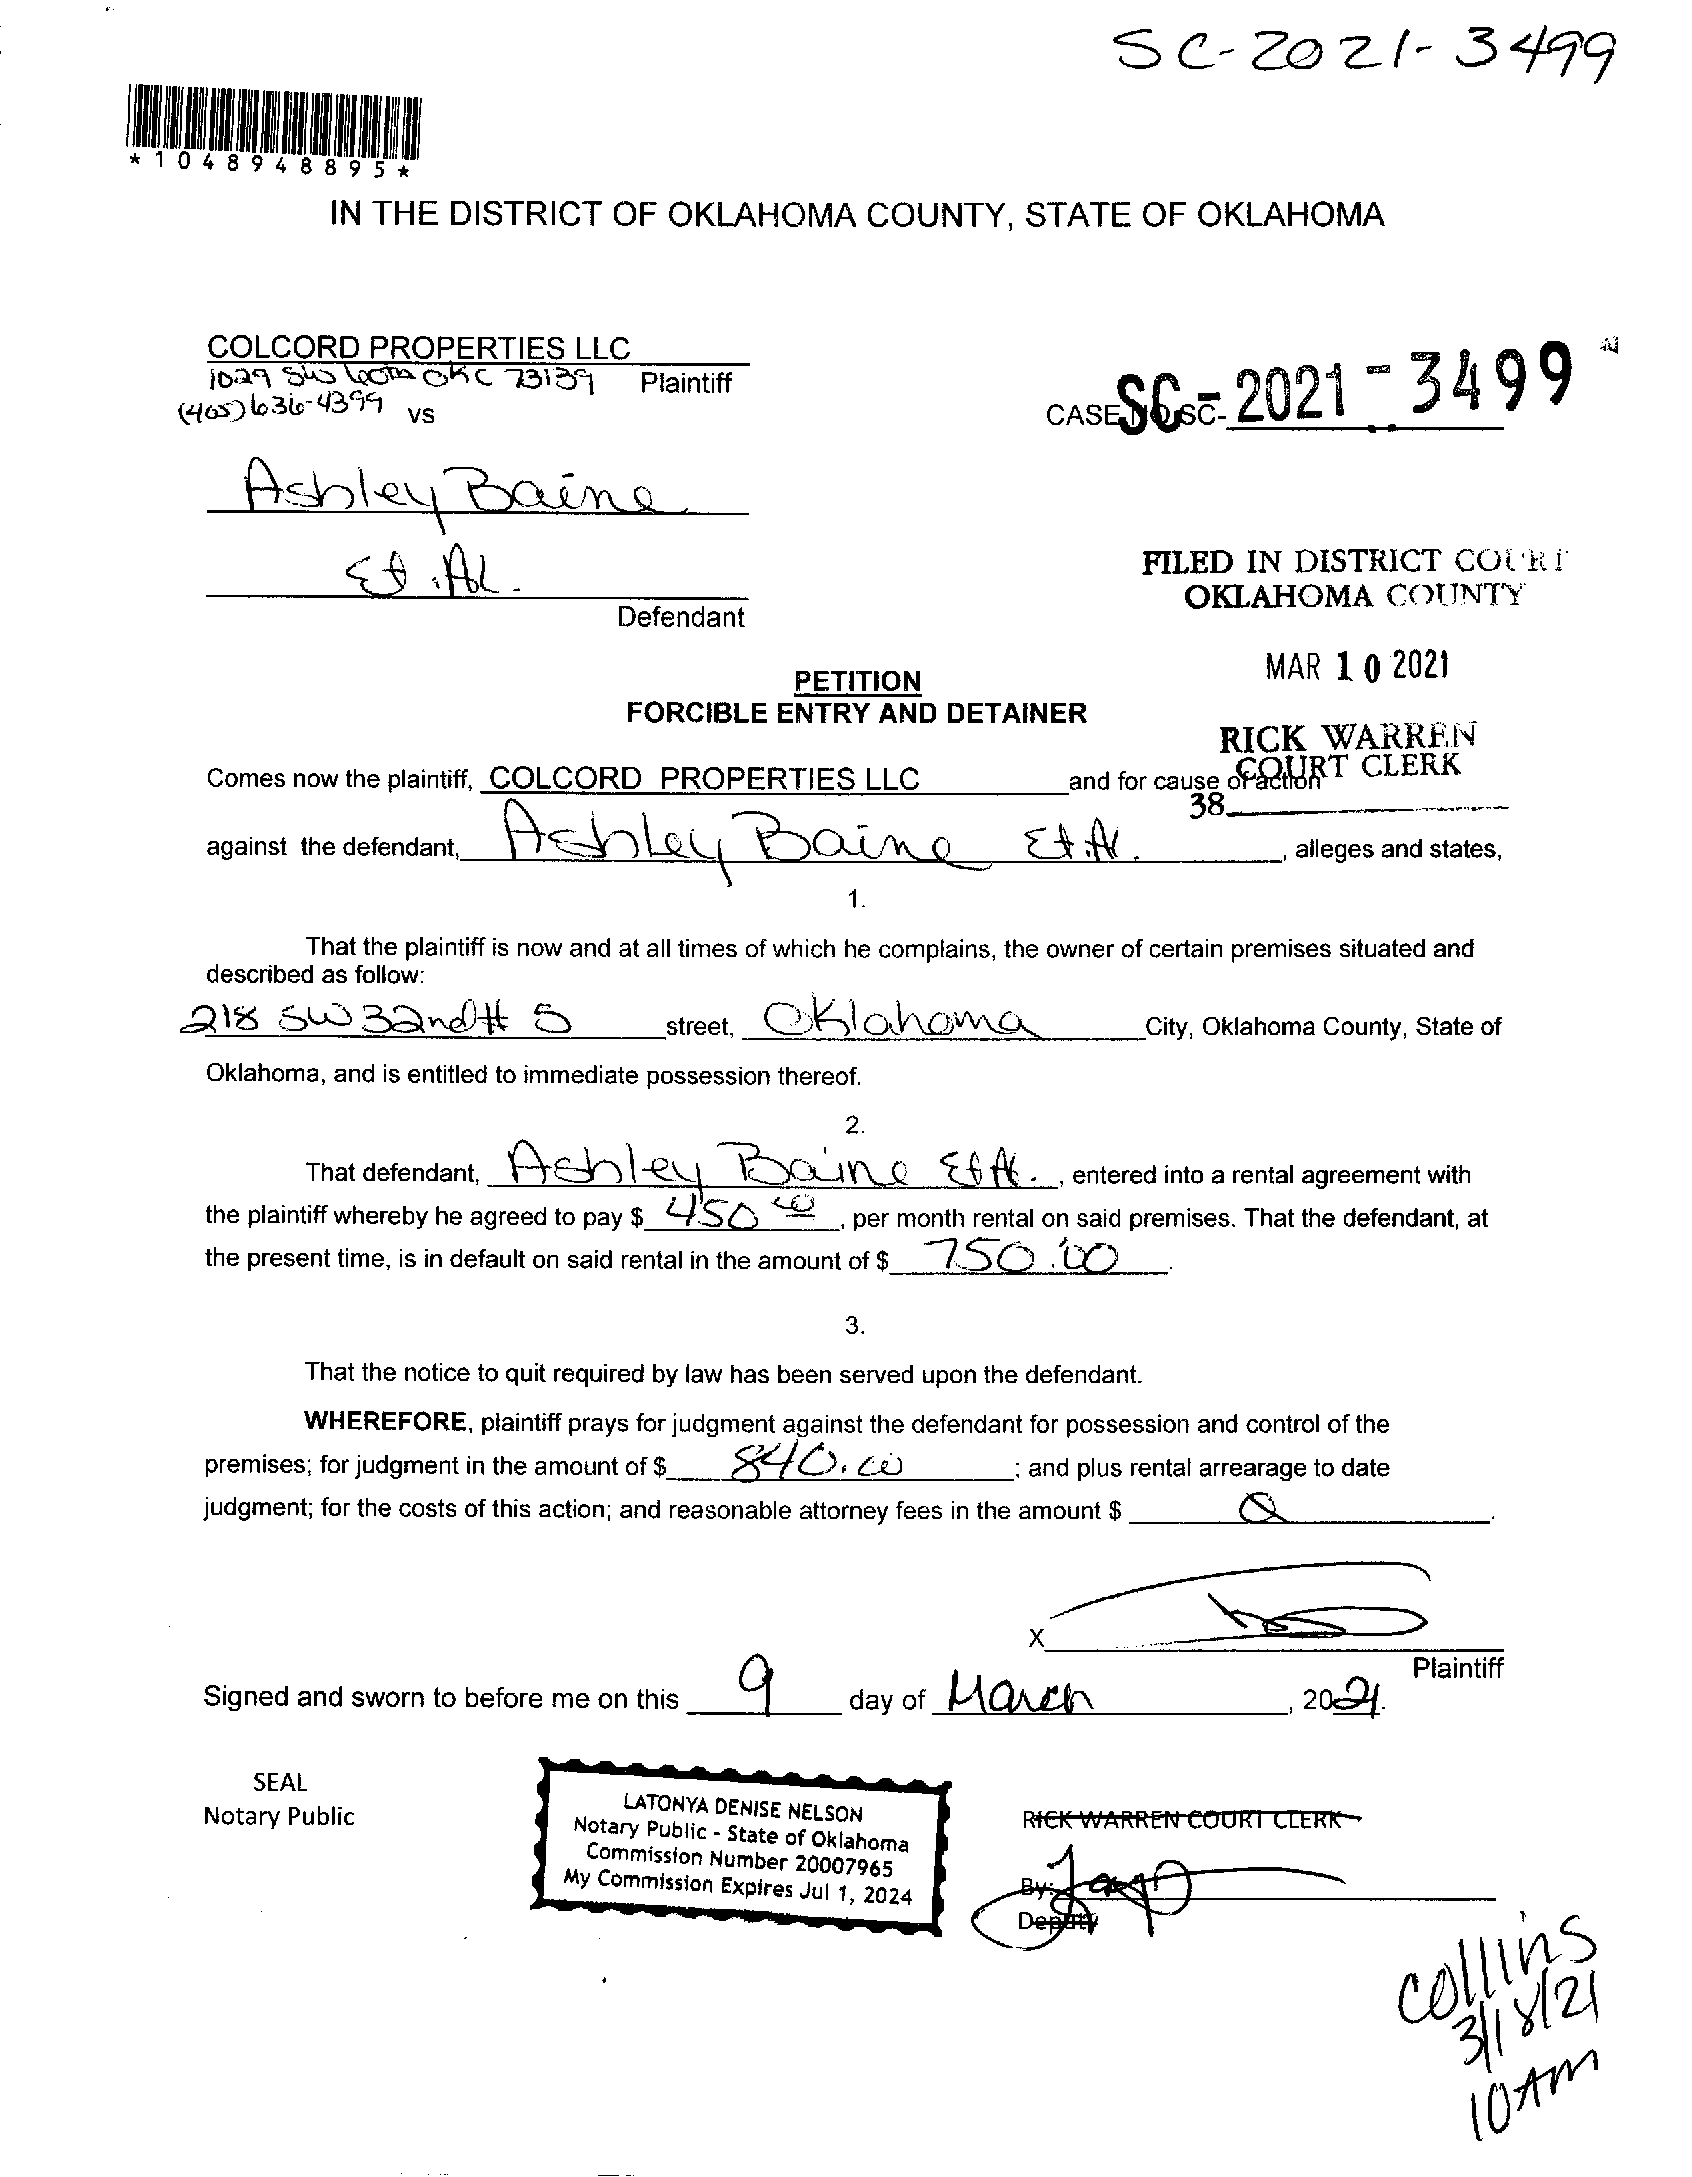 SC-2021-3499
*1048948895*
IN THE DISTRICT OF OKLAHOMA COUNTY, STATE OF OKLAHOMA
COLCORD PROPERTIES LLC
1029 SW 60th OKC 73139 Plaintiff
(405) 636-4399 vs
CASE NO. SC- SC-2021-3499
Ashley Baine
Et. Al.
Defendant
FILED IN DISTRICT COURT
OKLAHOMA COUNTY
MAR 10 2021
PETITION
FORCIBLE ENTRY AND DETAINER
RICK WARREN
COURT CLERK
38
Comes now the plaintiff, COLCORD PROPERTIES LLC and for cause of action
against the defendant, Ashley Baine Et. Al. , alleges and states,
1.
That the plaintiff is now and at all times of which he complains, the owner of certain premises situated and
described as follow:
218 SW 32nd # 5 street, Oklahoma City, Oklahoma County, State of
Oklahoma, and is entitled to immediate possession thereof.
2.
That defendant, Ashley Baine Et Al. , entered into a rental agreement with
the plaintiff whereby he agreed to pay $ 450 00 , per month rental on said premises. That the defendant, at
the present time, is in default on said rental in the amount of $ 750.00 .
3.
That the notice to quit required by law has been served upon the defendant.
WHEREFORE, plaintiff prays for judgment against the defendant for possession and control of the
premises; for judgment in the amount of $ 840.00 ; and plus rental arrearage to date
judgment; for the costs of this action; and reasonable attorney fees in the amount $ 0 .
X
Plaintiff
Signed and sworn to before me on this 9 day of March , 2021.
SEAL
Notary Public
LATONYA DENISE NELSON
Notary Public - State of Oklahoma
Commission Number 20007965
My Commission Expires Jul 1, 2024
RICK WARREN COURT CLERK
By:
Deputy
Collins
3/18/21
10AM